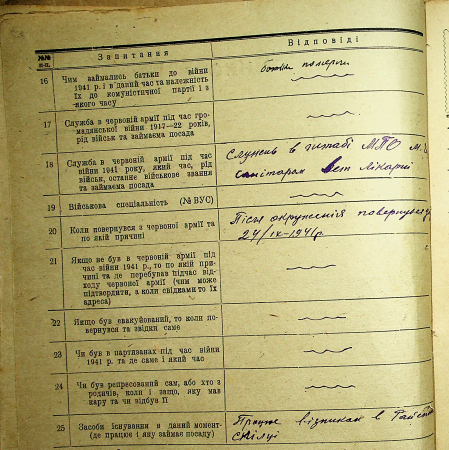 №№ п-п.
Запитання
Відповіді
16
Чим займались батьки до війни
1941 р. і в даний час та належність
їх до комуністичної партії і з
якого часу
батьки померли
17
Служба в червоній армії під час гро-
мадянської війни 1917—22 років,
рід військ та займаєма посада
18
Служба в червоній армії під час
війни 1941 року, який час, рід
військ, останнє військове звання
та займаєма посада
в штабі МПО
санітаром вет лікарні
19
Військова спеціальність (№ ВУС)
20
Коли повернувся з червоної армії та
по якій причині
Після окруженія
24/IX-1941 р.
21
Якщо не був в червоній армії під
час війни 1941 р., то по якій при-
чині та де перебував підчас від-
ходу червоної армії (чим може
підтвердити, а коли свідками то їх
адреса)
22
Якщо був евакуйований, то коли по-
вернувся та звідки саме
23
Чи був в партизанах під час війни
1941 р. та де саме і який час
24
Чи був репресований сам, або хто з
родичів, коли і защо, яку мав
кару та чи відбув її
25
Засоби існування в даний момент-
(де працює і яку займає посаду)
Працює візником в
спілці